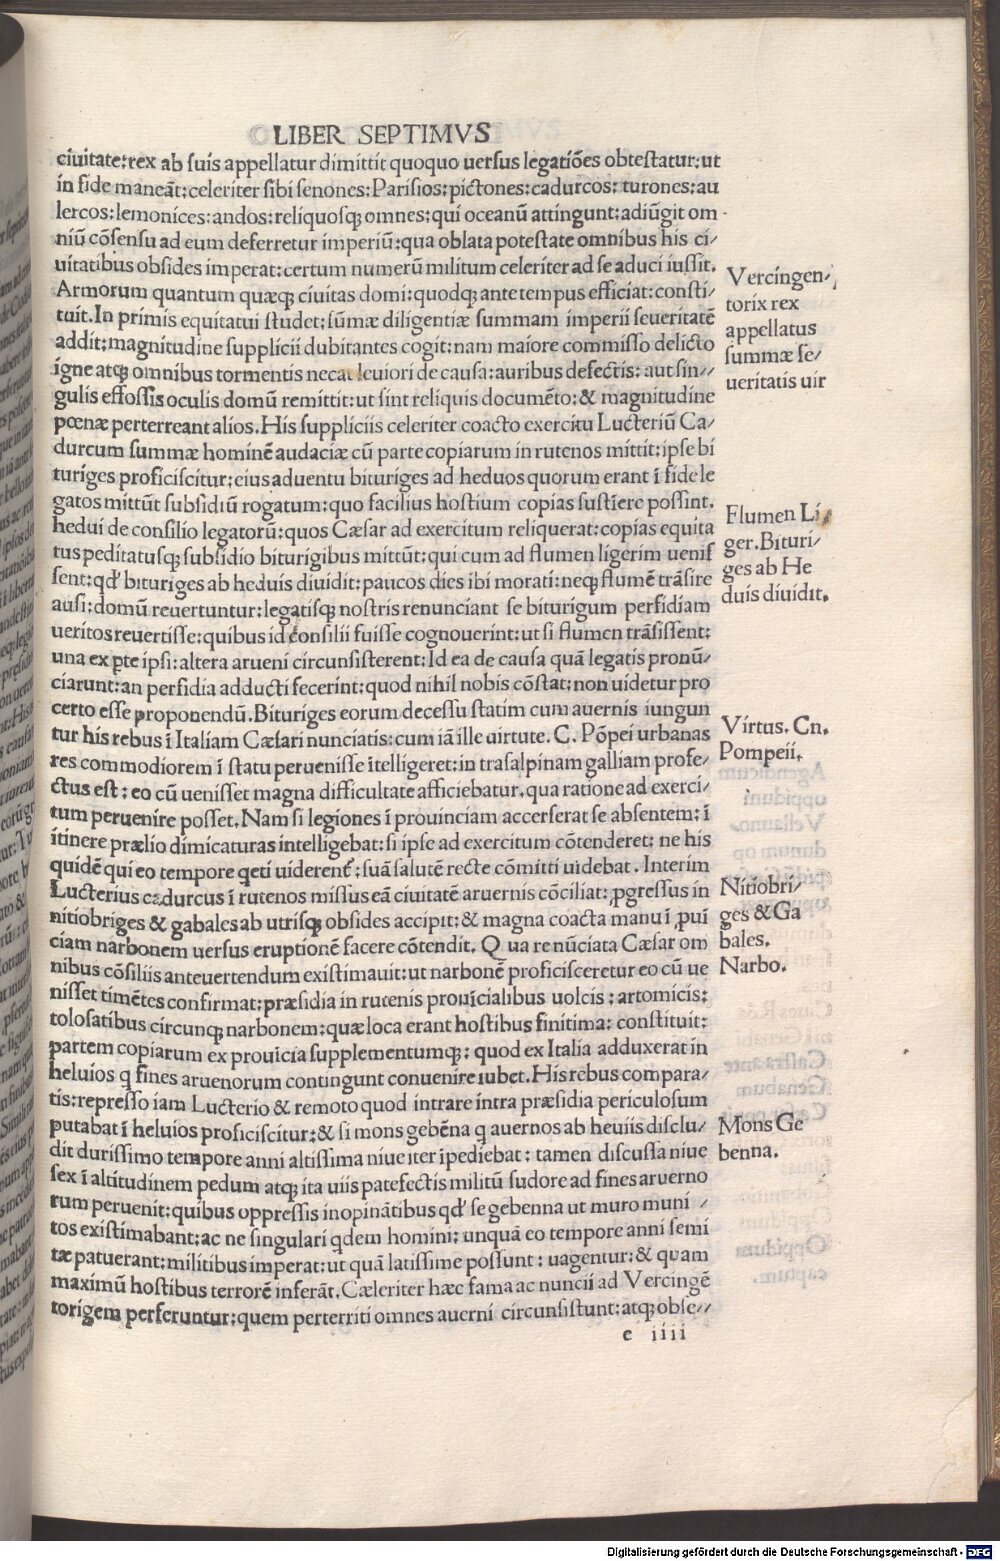 LIBER SEPTIMVS
ciuitate:rex ab suis appellatur dimittit quoquo uersus legatiōes obtestatur:ut
in fide maneāt:celeriter sibi senones:Parisios:pictones:cadurcos:turones:au
lercos:lemonices:andos:reliquosq; omnes:qui oceanū attingunt:adiūgit om-
niū cōsensu ad eum deferretur imperiū:qua oblata potestate omnibus his ci/
uitatibus obsides imperat:certum numerū militum celeriter ad se aduci iussit.
Armorum quantum quæq; ciuitas domi:quodq; ante tempus efficiat:consti/
tuit.In primis equitatui studet:sūmæ diligentiæ summam imperii seueritatē
addit:magnitudine supplicii dubitantes cogit:nam maiore commisso delicto
igne atq; omnibus tormentis necat leuiori de causa:auribus defectis: aut sin//
gulis effossis oculis domū remittit:ut sint reliquis documēto:& magnitudine
pœnæ perterreant alios.His suppliciis celeriter coacto exercitu Lucteriū Ca/
durcum summæ hominē audaciæ cū parte copiarum in rutenos mittit:ipse bi
turiges proficiscitur:eius aduentu bituriges ad heduos quorum erant ī fide le
gatos mittūt subsidiū rogatum:quo facilius hostium copias sustīere possint.
hedui de consilio legatorū:quos Cæsar ad exercitum reliquerat:copias equita
tus peditatusq; subsidio biturigibus mittūt:qui cum ad flumen ligerim uenis
sent:qd' bituriges ab heduis diuidit:paucos dies ibi morati:neq; flumē trāsire
ausi:domū reuertuntur:legatisq; nostris renunciant se biturigum perfidiam
ueritos reuertisse:quibus id consilii fuisse cognouerint:ut si flumen trāsissent:
una ex pte ipsi:altera arueni circunsisterent:Id ea de causa quā legatis pronū/
ciarunt:an perfidia adducti fecerint:quod nihil nobis cōstat:non uidetur pro
certo esse proponendū.Bituriges eorum decessu statim cum auernis iungun
tur his rebus ī Italiam Cæsari nunciatis:cum iā ille uirtute. C. Pōpei urbanas
res commodiorem ī statu peruenisse ītelligeret:in trāsalpinam galliam profe/
ctus est:eo cū uenisset magna difficultate afficiebatur,qua ratione ad exerci/
tum peruenire posset.Nam si legiones ī prouinciam accerserat se absentem:ī
itinere prælio dimicaturas intelligebat:si ipse ad exercitum cōtenderet:ne his
quidē qui eo tempore qeti uiderent':suā salutē recte cōmitti uidebat.Interim
Lucterius cadurcus ī rutenos missus eā ciuitatē aruernis cōciliat:pgressus in
nitiobriges & gabales ab utrisq; obsides accipit:& magna coacta manu ī pui
ciam narbonem uersus eruptionē facere cōtendit. Qua re nūciata Cæsar om
nibus cōsiliis anteuertendum existimauit:ut narbonē proficisceretur eo cū ue
nisset timētes confirmat:præsidia in rutenis prouīcialibus uolcis:artomicis:
tolosatibus circunq; narbonem:quæ loca erant hostibus finitima:constituit:
partem copiarum ex prouīcia supplementumq;: quod ex Italia adduxerat in
heluios q fines aruenorum contingunt conuenire iubet.His rebus compara/
tis:represso iam Lucterio & remoto quod intrare intra præsidia periculosum
putabat ī heluios proficiscitur:& si mons gebēna q auernos ab heuiis disclu/
dit durissimo tempore anni altissima niue iter īpediebat:tamen discussa niue
sex ī altitudinem pedum atq; ita uiis patefectis militū sudore ad fines aruerno
rum peruenit:quibus oppressis inopinātibus qd' se gebenna ut muro muni /
tos existimabant:ac ne singulari qdem homini:unquā eo tempore anni semi
tæ patuerant:militibus imperat:ut quā latissime possunt:uagentur:& quam
maximū hostibus terrorē inferāt.Cæleriter hæc fama ac nuncii ad Vercingē
torigem perferuntur:quem perterriti omnes auerni circunsistunt:atq; obse//
e iiii
Vercingen/
torix rex
appellatus
summæ se/
ueritatis uir
Flumen Li/
ger.Bituri/
ges ab He
duis diuidit.
Virtus. Cn.
Pompeii.
Nitiobri/
ges & Ga
bales.
Narbo.
Mons Ge
benna.
Digitalisierung gefördert durch die Deutsche Forschungsgemeinschaft - DFG